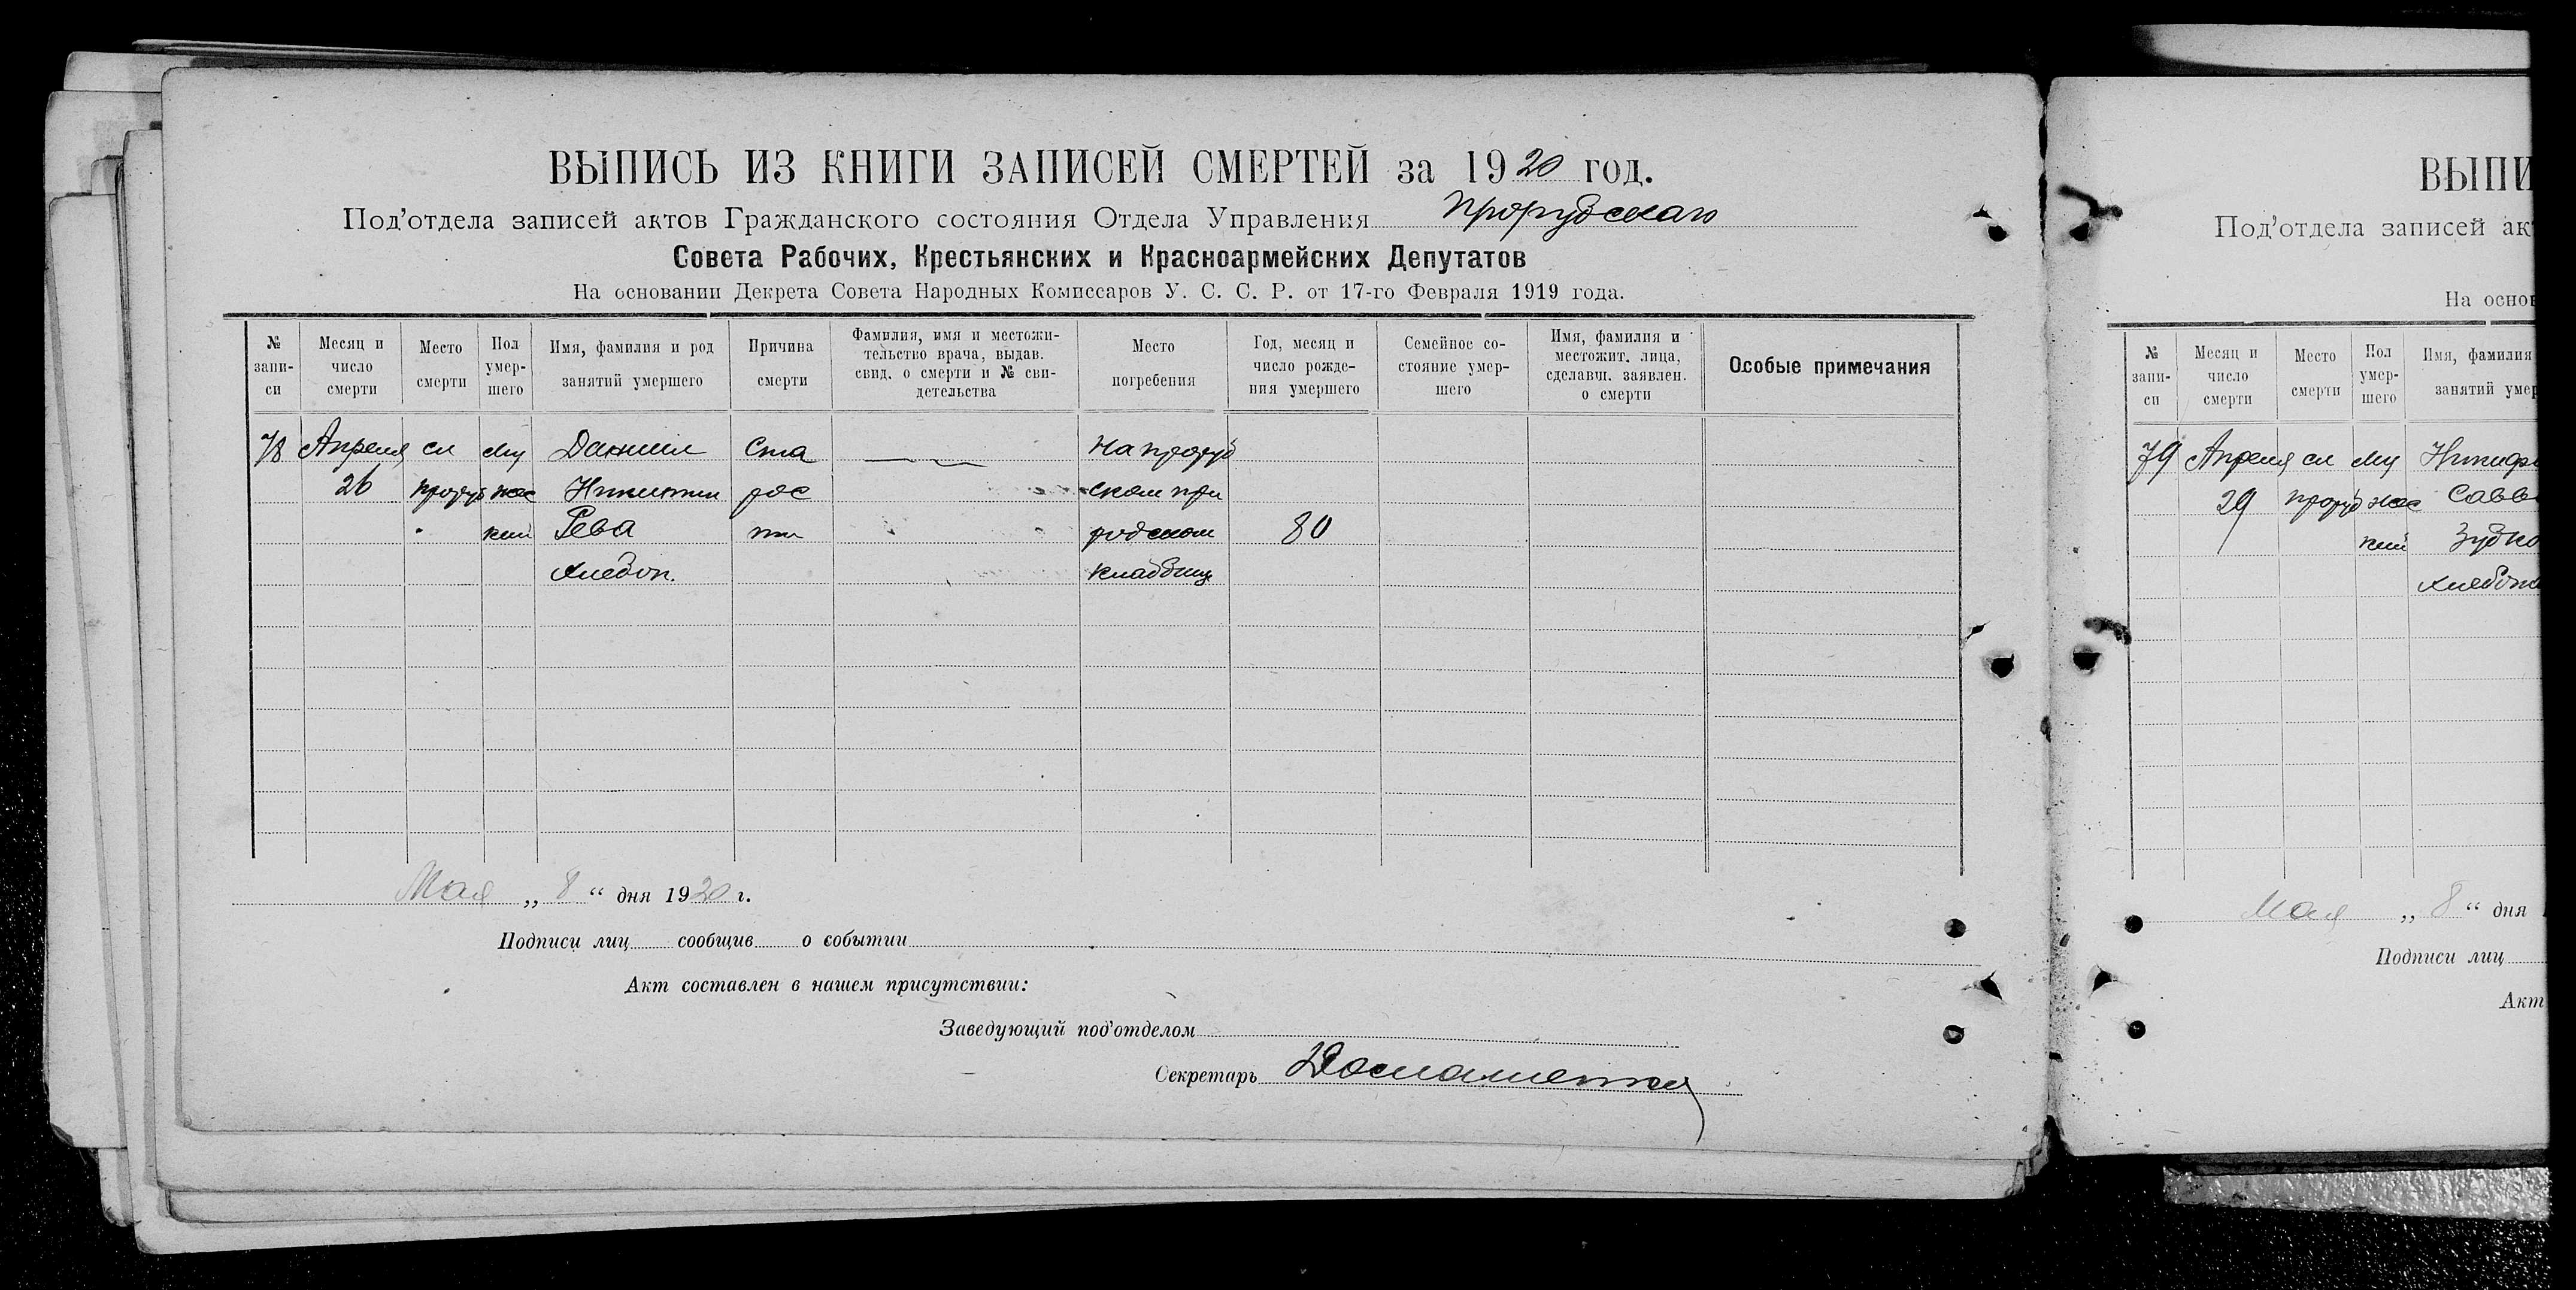 ВЫПИСЬ ИЗ КНИГИ ЗАПИСЕЙ СМЕРТЕЙ за 1920 год.
Под'отдела записей актов Гражданского состояния Отдела Управления Прорубскаго
Совета Рабочих, Крестьянских и Красноармейских Депутатов
На основании Декрета Совета Народных Комиссаров У. С. С. Р. от 17-го Февраля 1919 года.
№ запи- си
Месяц и число смерти
Место смерти
Пол умер- шего
Имя, фамилия и род занятий умершего
Причина смерти
Фамилия, имя и местожи- тельство врача, выдав. свид. о смерти и № сви- детельства
Место погребения
Год, месяц и число рожде- ния умершего
Семейное со- стояние умер- шего
Имя, фамилия и местожит. лица, сделавш. заявлен. о смерти
Особые примечания
78 Апреля сл Му Даниил Ста Наproруб
26 проруб жес Никитин рос ском при
кий Рева ти родском 80
хлебоп. кладбищ
Мая „ 8 “ дня 1920 г.
Подписи лиц сообщив о событии
Акт составлен в нашем присутствии:
Заведующий под'отделом
Секретарь
ВЫПИ
Под'отдела записей ак
На основ
№ запи- си
Месяц и число смерти
Место смерти
Пол умер- шего
Имя, фамилия занятий умер
79 Апреля сл Му
29 проруб жес Савв
кий Зубко
хлебопа
Мая „ 8 “ дня
Подписи лиц
Акт